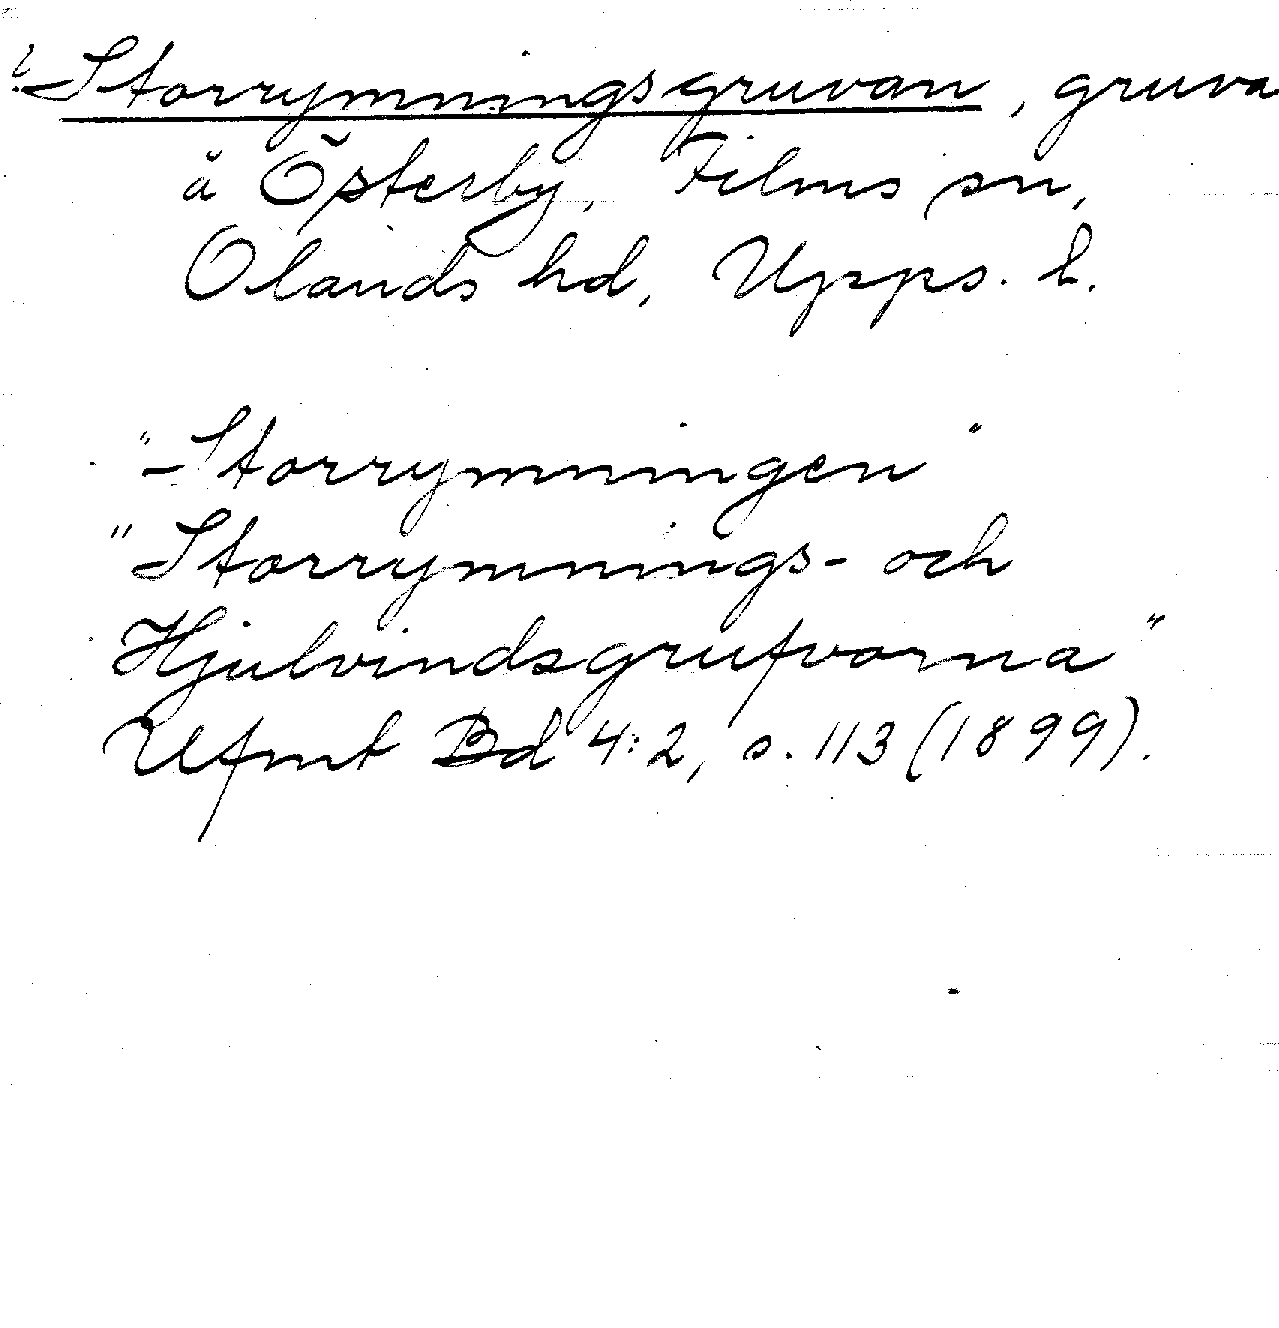 ? Storrymningsgruvan, gruva
å Österby, Films sn,
Olands hd, Upps. l.
"Storrymningen"
"Storrymnings- och
Hjulvindsgrufvorna"
Ufmt Bd 4:2, s. 113 (1899).